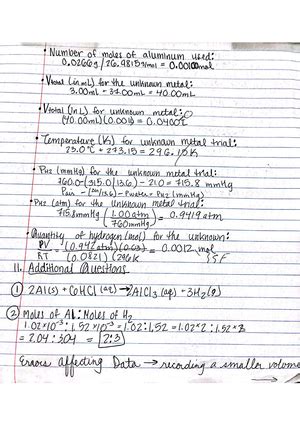 • Number of moles of aluminum used:
0.0266g / 26.9815g/mol = 0.00100mol
• Vtotal (in mL) for the unknown metal:
3.00mL + 37.00mL = 40.00mL
• Vtotal (in L) for unknown metal:
(40.00mL)(0.001) = 0.0400L
• Temperature (K) for unknown metal trial:
23.0°C + 273.15 = 296.15K
• PH2 (mmHg) for the unknown metal trial:
760.0-(315.0/13.6) - 21.0 = 715.8 mmHg
• PH2 (atm) for the unknown metal trial:
715.8mmHg (1.00atm / 760mmHg) = 0.9419 atm
• Quantity of hydrogen (mol) for the unknown:
PV / RT (0.942atm)(0.03) / (0.0821)(296K) = 0.0012 mol
11. Additional Questions
① 2Al(s) + 6HCl(aq) → 2AlCl3(aq) + 3H2(g)
② Moles of Al: Moles of H2
1.02x10⁻³ : 1.52x10⁻³ = 1.02:1.52 = 1.02*2 : 1.52*2
= 2.04 : 3.04 = 2:3
Errors affecting Data → recording a smaller volume